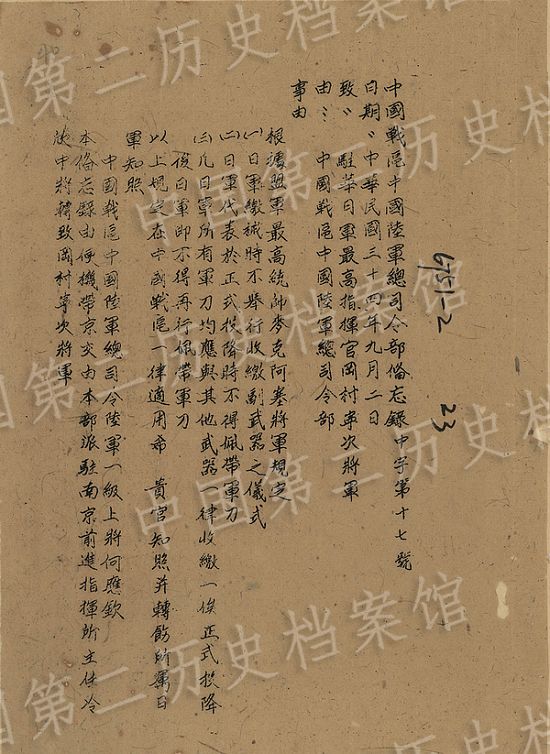 中國戰區中國陸軍總司令部備忘錄中字第十七號
日期：中華民國三十四年九月二日
致：駐華日軍最高指揮官岡村寧次將軍
由：中國戰區中國陸軍總司令部
事由
根據盟軍最高統帥麥克阿塞將軍規定
(一)日軍繳械時不舉行收繳副武器之儀式
(二)日軍代表於正式投降時不得佩帶軍刀
(三)凡日軍所有軍刀均應與其他武器一律收繳一俟正式投降
後日軍即不得再行佩帶軍刀
以上規定在中國戰區一律適用希 貴官知照并轉飭所屬日
軍知照
中國戰區中國陸軍總司令陸軍一級上將何應欽
本備忘錄由飛機帶京交由本部派駐南京前進指揮所主任冷
欣中將轉致岡村寧次將軍
6151-2
23
中国第二历史档案馆
中国第二历史档案馆
中国第二历史档案馆
中国第二历史档案馆